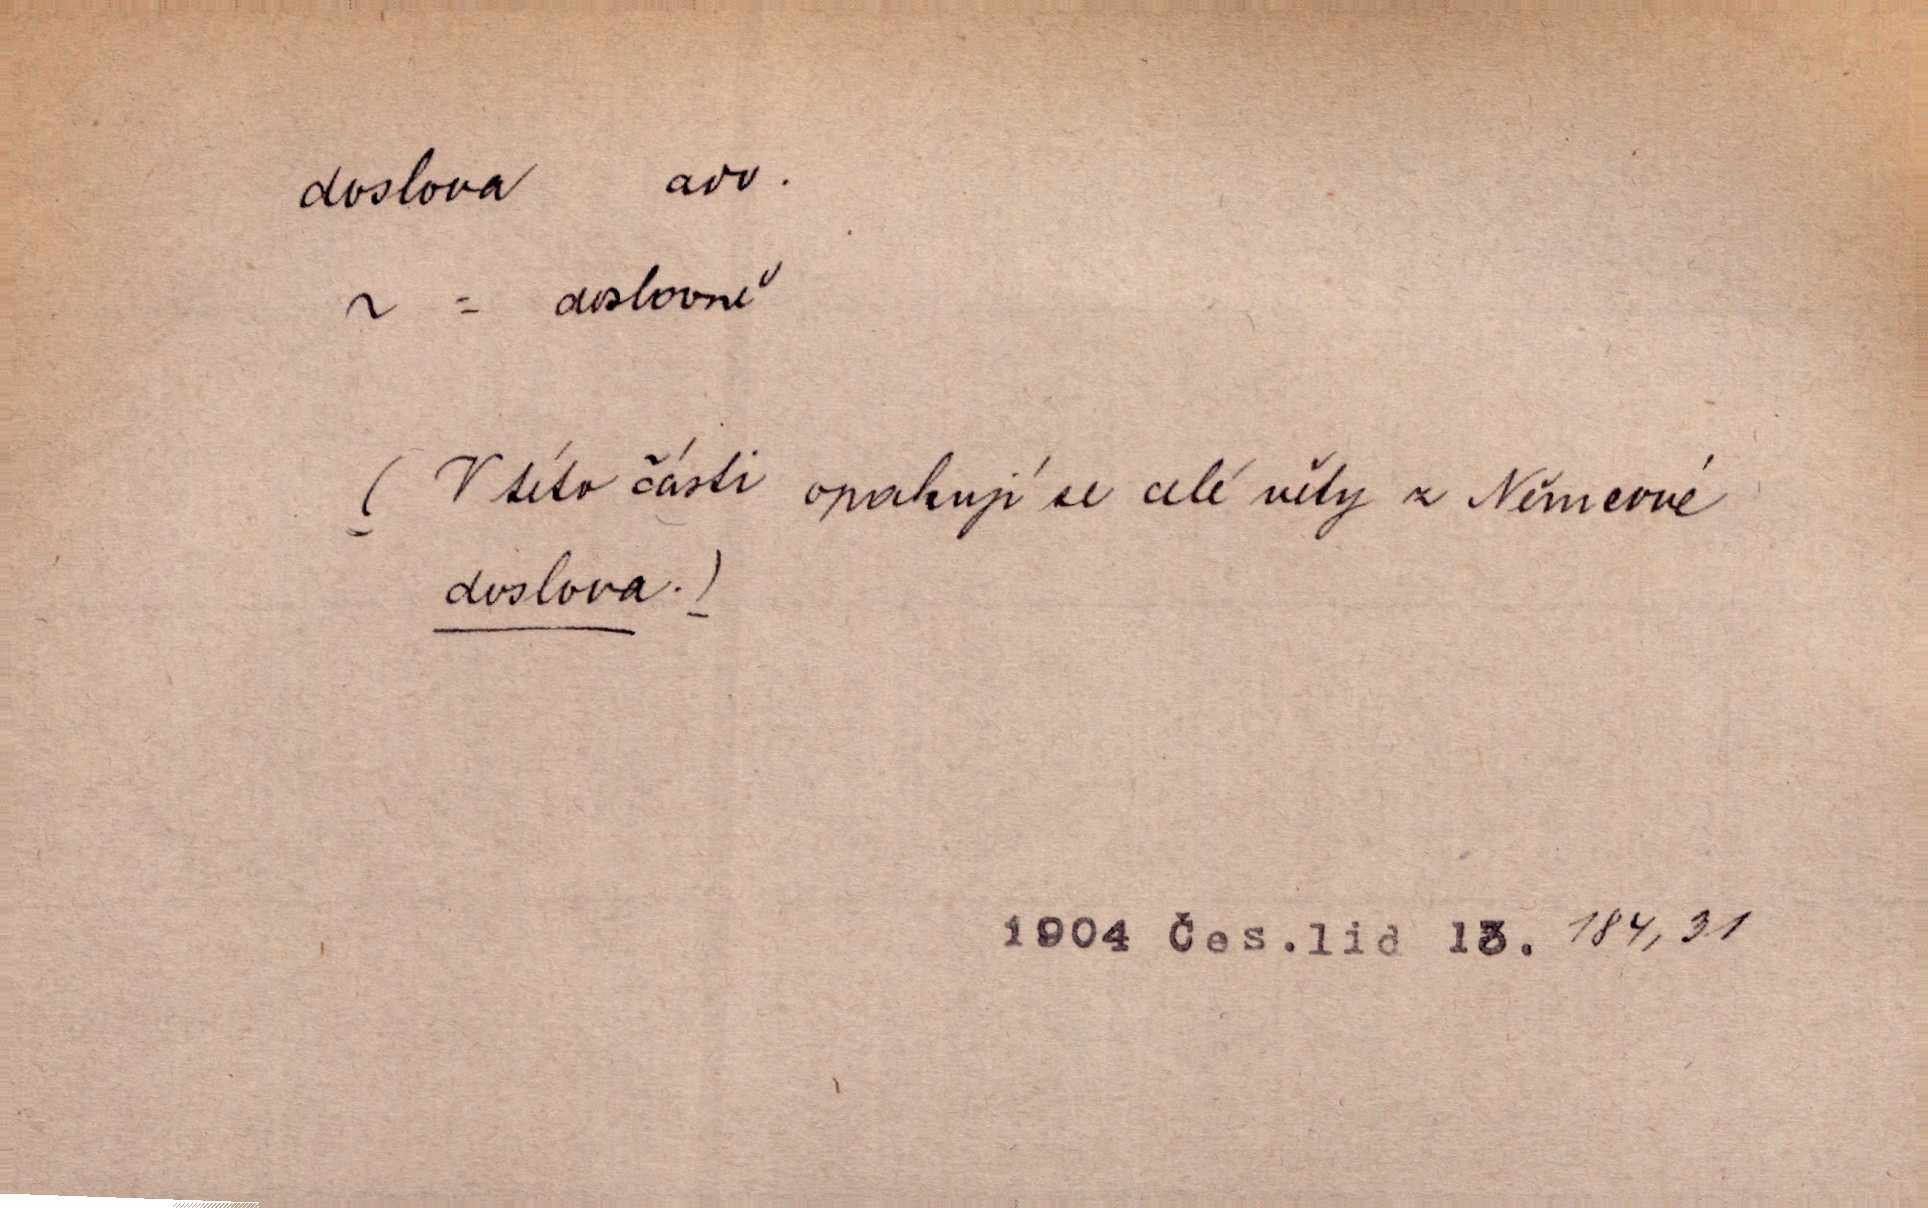 doslova adv.
~ = doslovně
(V této části opakují se celé věty z Němcové
doslova.)
1904 Čes.lid 13. 184, 31